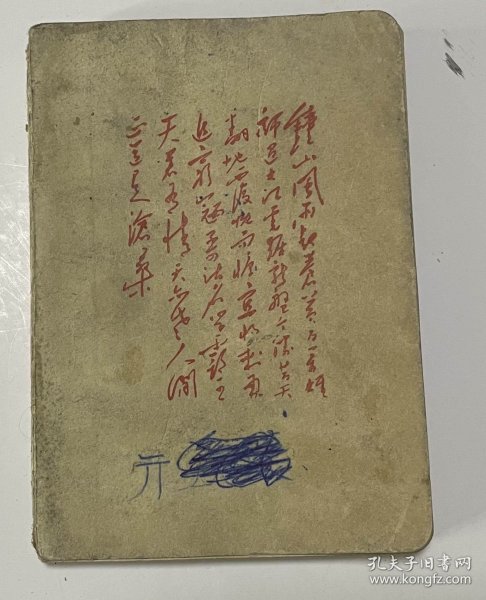 鐘山風雨起蒼黃百万雄
師過大江虎踞龍盤今勝昔天
翻地覆慨而慷宜將剩勇
追窮寇不可沽名學霸王
天若有情天亦老人間
正道是滄桑
孔夫子旧书网
www.kongfz.com